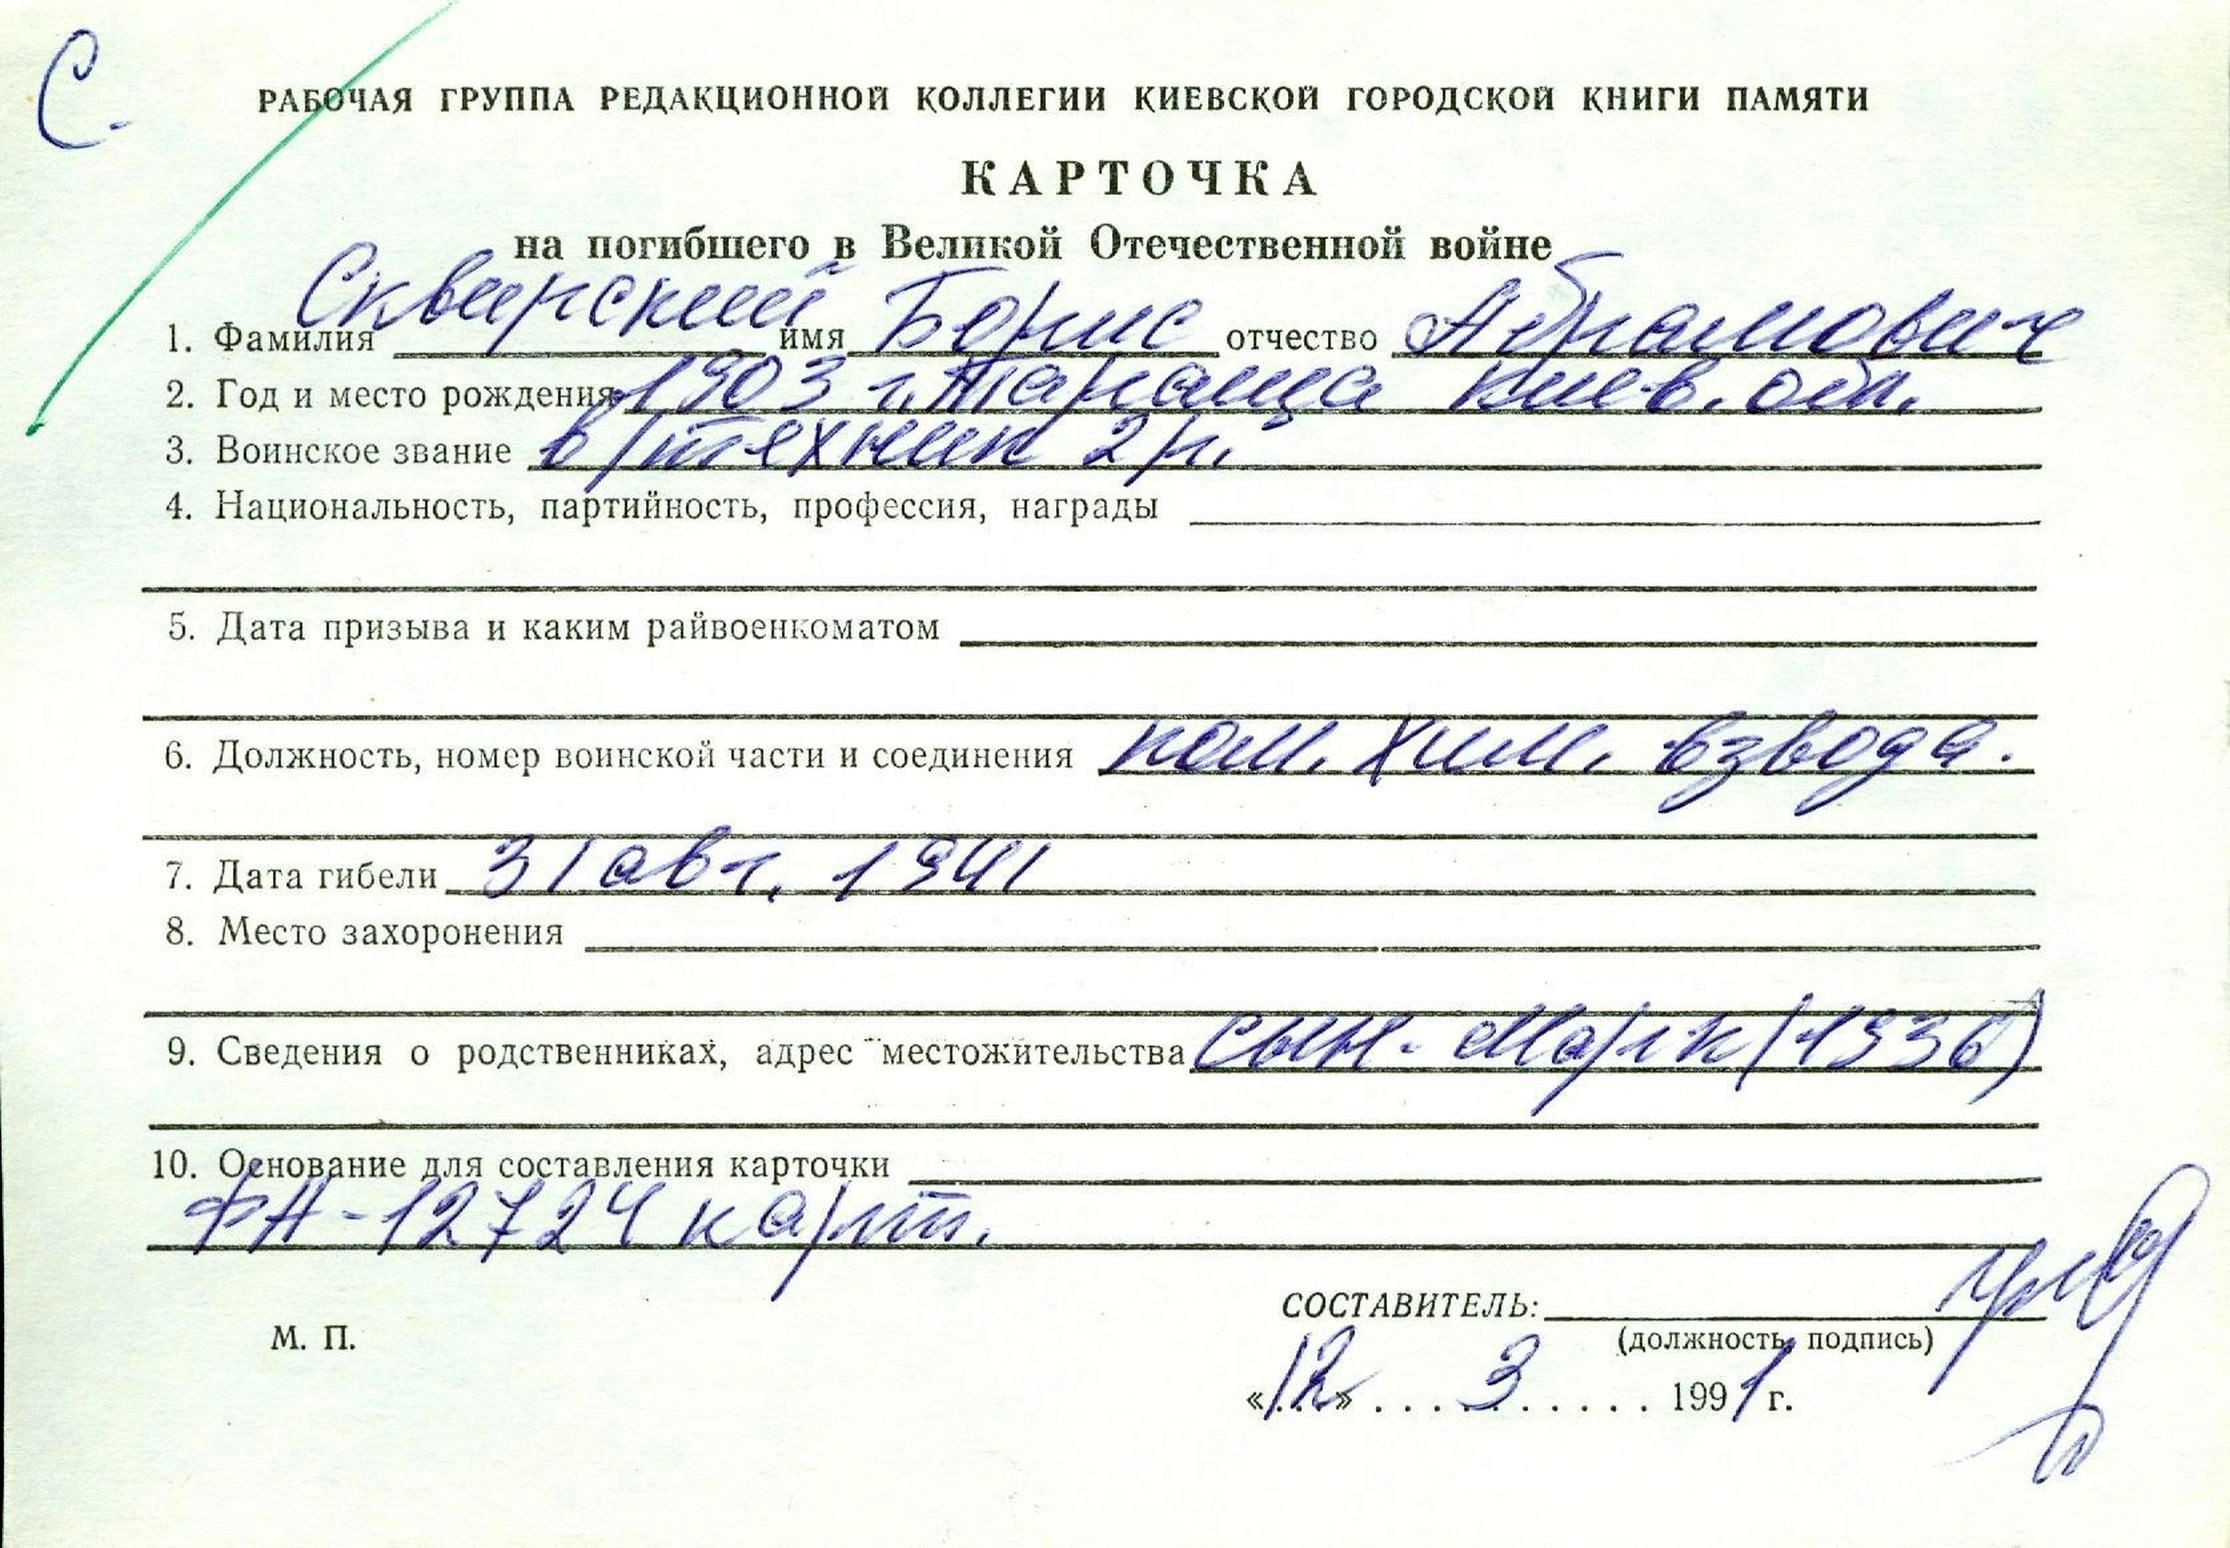 С.
РАБОЧАЯ ГРУППА РЕДАКЦИОННОЙ КОЛЛЕГИИ КИЕВСКОЙ ГОРОДСКОЙ КНИГИ ПАМЯТИ
КАРТОЧКА
на погибшего в Великой Отечественной войне
1. Фамилия Сквирский имя Борис отчество Абрамович
2. Год и место рождения 1903 г. Тараща Киев. обл.
3. Воинское звание в/техник 2 р.
4. Национальность, партийность, профессия, награды
5. Дата призыва и каким райвоенкоматом
6. Должность, номер воинской части и соединения ком. хим. взвода.
7. Дата гибели 31 авг. 1941
8. Место захоронения
9. Сведения о родственниках, адрес местожительства сын - Марк (1936)
10. Основание для составления карточки
ФА-12724 карт.
СОСТАВИТЕЛЬ:
М. П.
(должность, подпись)
«12» . . . 3 . . . . . 1991 г.